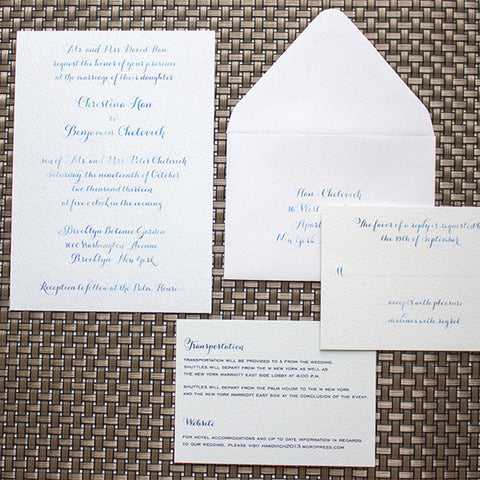 Mr and Mrs David Han
request the honor of your presence
at the marriage of their daughter
Christina Han
to
Benjamin Chelovech
son of Mr and Mrs Peter Chelovech
Saturday, the nineteenth of October
two thousand thirteen
at five o'clock in the evening
Brooklyn Botanic Garden
1000 Washington Avenue
Brooklyn, New York
Reception to follow at the Palm House
Han/Chelovech
16 West
Apart
New York
The favor of a reply is requested
the 19th of September
M
accepts with pleasure
declines with regret
Transportation
TRANSPORTATION WILL BE PROVIDED TO & FROM THE WEDDING.
SHUTTLES WILL DEPART FROM THE W NEW YORK AS WELL AS
THE NEW YORK MARRIOTT EAST SIDE LOBBY AT 4:00 PM.
SHUTTLES WILL DEPART FROM THE PALM HOUSE TO THE W NEW YORK
AND THE NEW YORK MARRIOTT EAST SIDE AT THE CONCLUSION OF THE EVENT.
Website
FOR HOTEL ACCOMMODATIONS AND UP TO DATE INFORMATION IN REGARDS
TO OUR WEDDING, PLEASE VISIT HANOVICH2013.WORDPRESS.COM